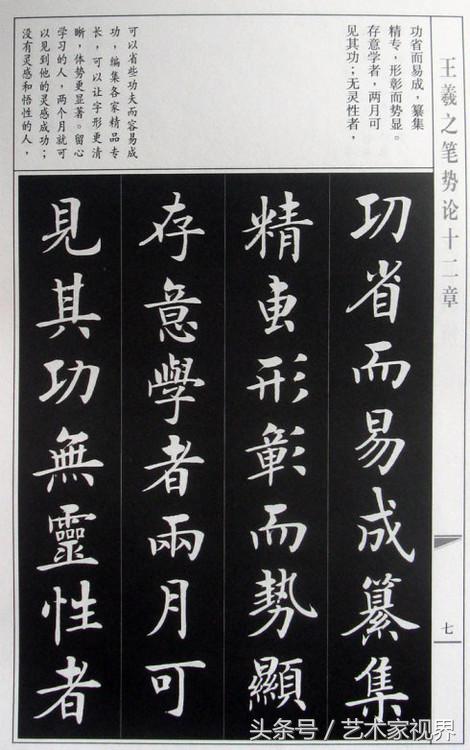 王羲之笔势论十二章
七
功省而易成，纂集
精专，形彰而势显。
存意学者，两月可
见其功；无灵性者，
可以省些功夫而容易成
功，编集各家精品专
长，可以让字形更清
晰，体势更显著。留心
学习的人，两个月就可
以见到他的灵感成功；
没有灵感和悟性的人，
功省而易成纂集
精専形彰而勢顯
存意學者兩月可
見其功無靈性者
头条号/艺术家视界